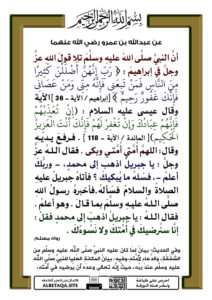 بسم الله الرحمن الرحيم
عن عبدالله بن عمرو رضي الله عنهما
أن النبي صلى الله عليه وسلم تلا قول الله عز
وجل في إبراهيم : ﴿ رب إنهن أضللن كثيرا
من الناس فمن تبعني فإنه مني ومن عصاني
فإنك غفور رحيم ﴾ [إبراهيم / الآية - 36] الآية
وقال عيسى عليه السلام : ﴿ إن تعذبهم
فإنهم عبادك وإن تغفر لهم فإنك أنت العزيز
الحكيم ﴾ [المائدة / الآية - 118] . فرفع يديه
وقال : اللهم أمتي أمتي وبكى . فقال الله عز
وجل : يا جبريل اذهب إلى محمد، - وربك
أعلم - ، فسله ما يبكيك ؟ فأتاه جبريل عليه
الصلاة والسلام فسأله . فأخبره رسول الله
صلى الله عليه وسلم بما قال . وهو أعلم .
فقال الله : يا جبريل اذهب إلى محمد فقل :
إنا سنرضيك في أمتك ولا نسوءك .
رواه مسلم
وفي الحديث: بيان لما كان عليه النبي صلى الله عليه وسلم من
الشفقة
عليه وسلم عند ربه، حيث إنه تعالى وعده أن يرضيه في أمته.
ALBETAQA.SITE